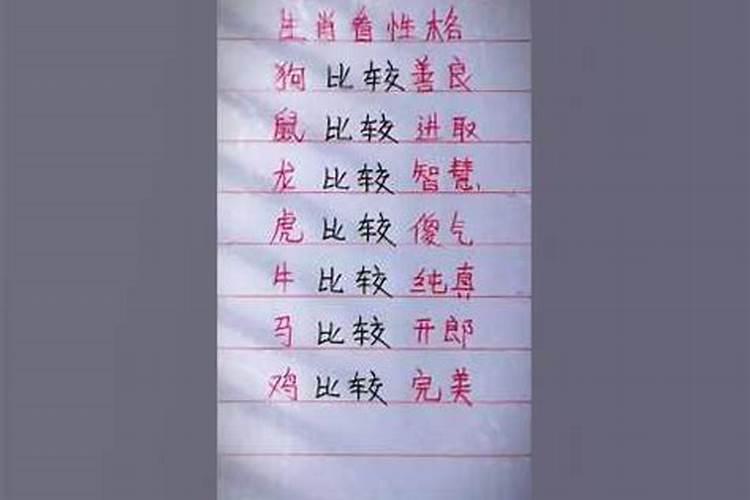 生肖看性格
狗比较善良
鼠比较进取
龙比较智慧
虎比较傻气
牛比较纯真
马比较开郎
鸡比较完美